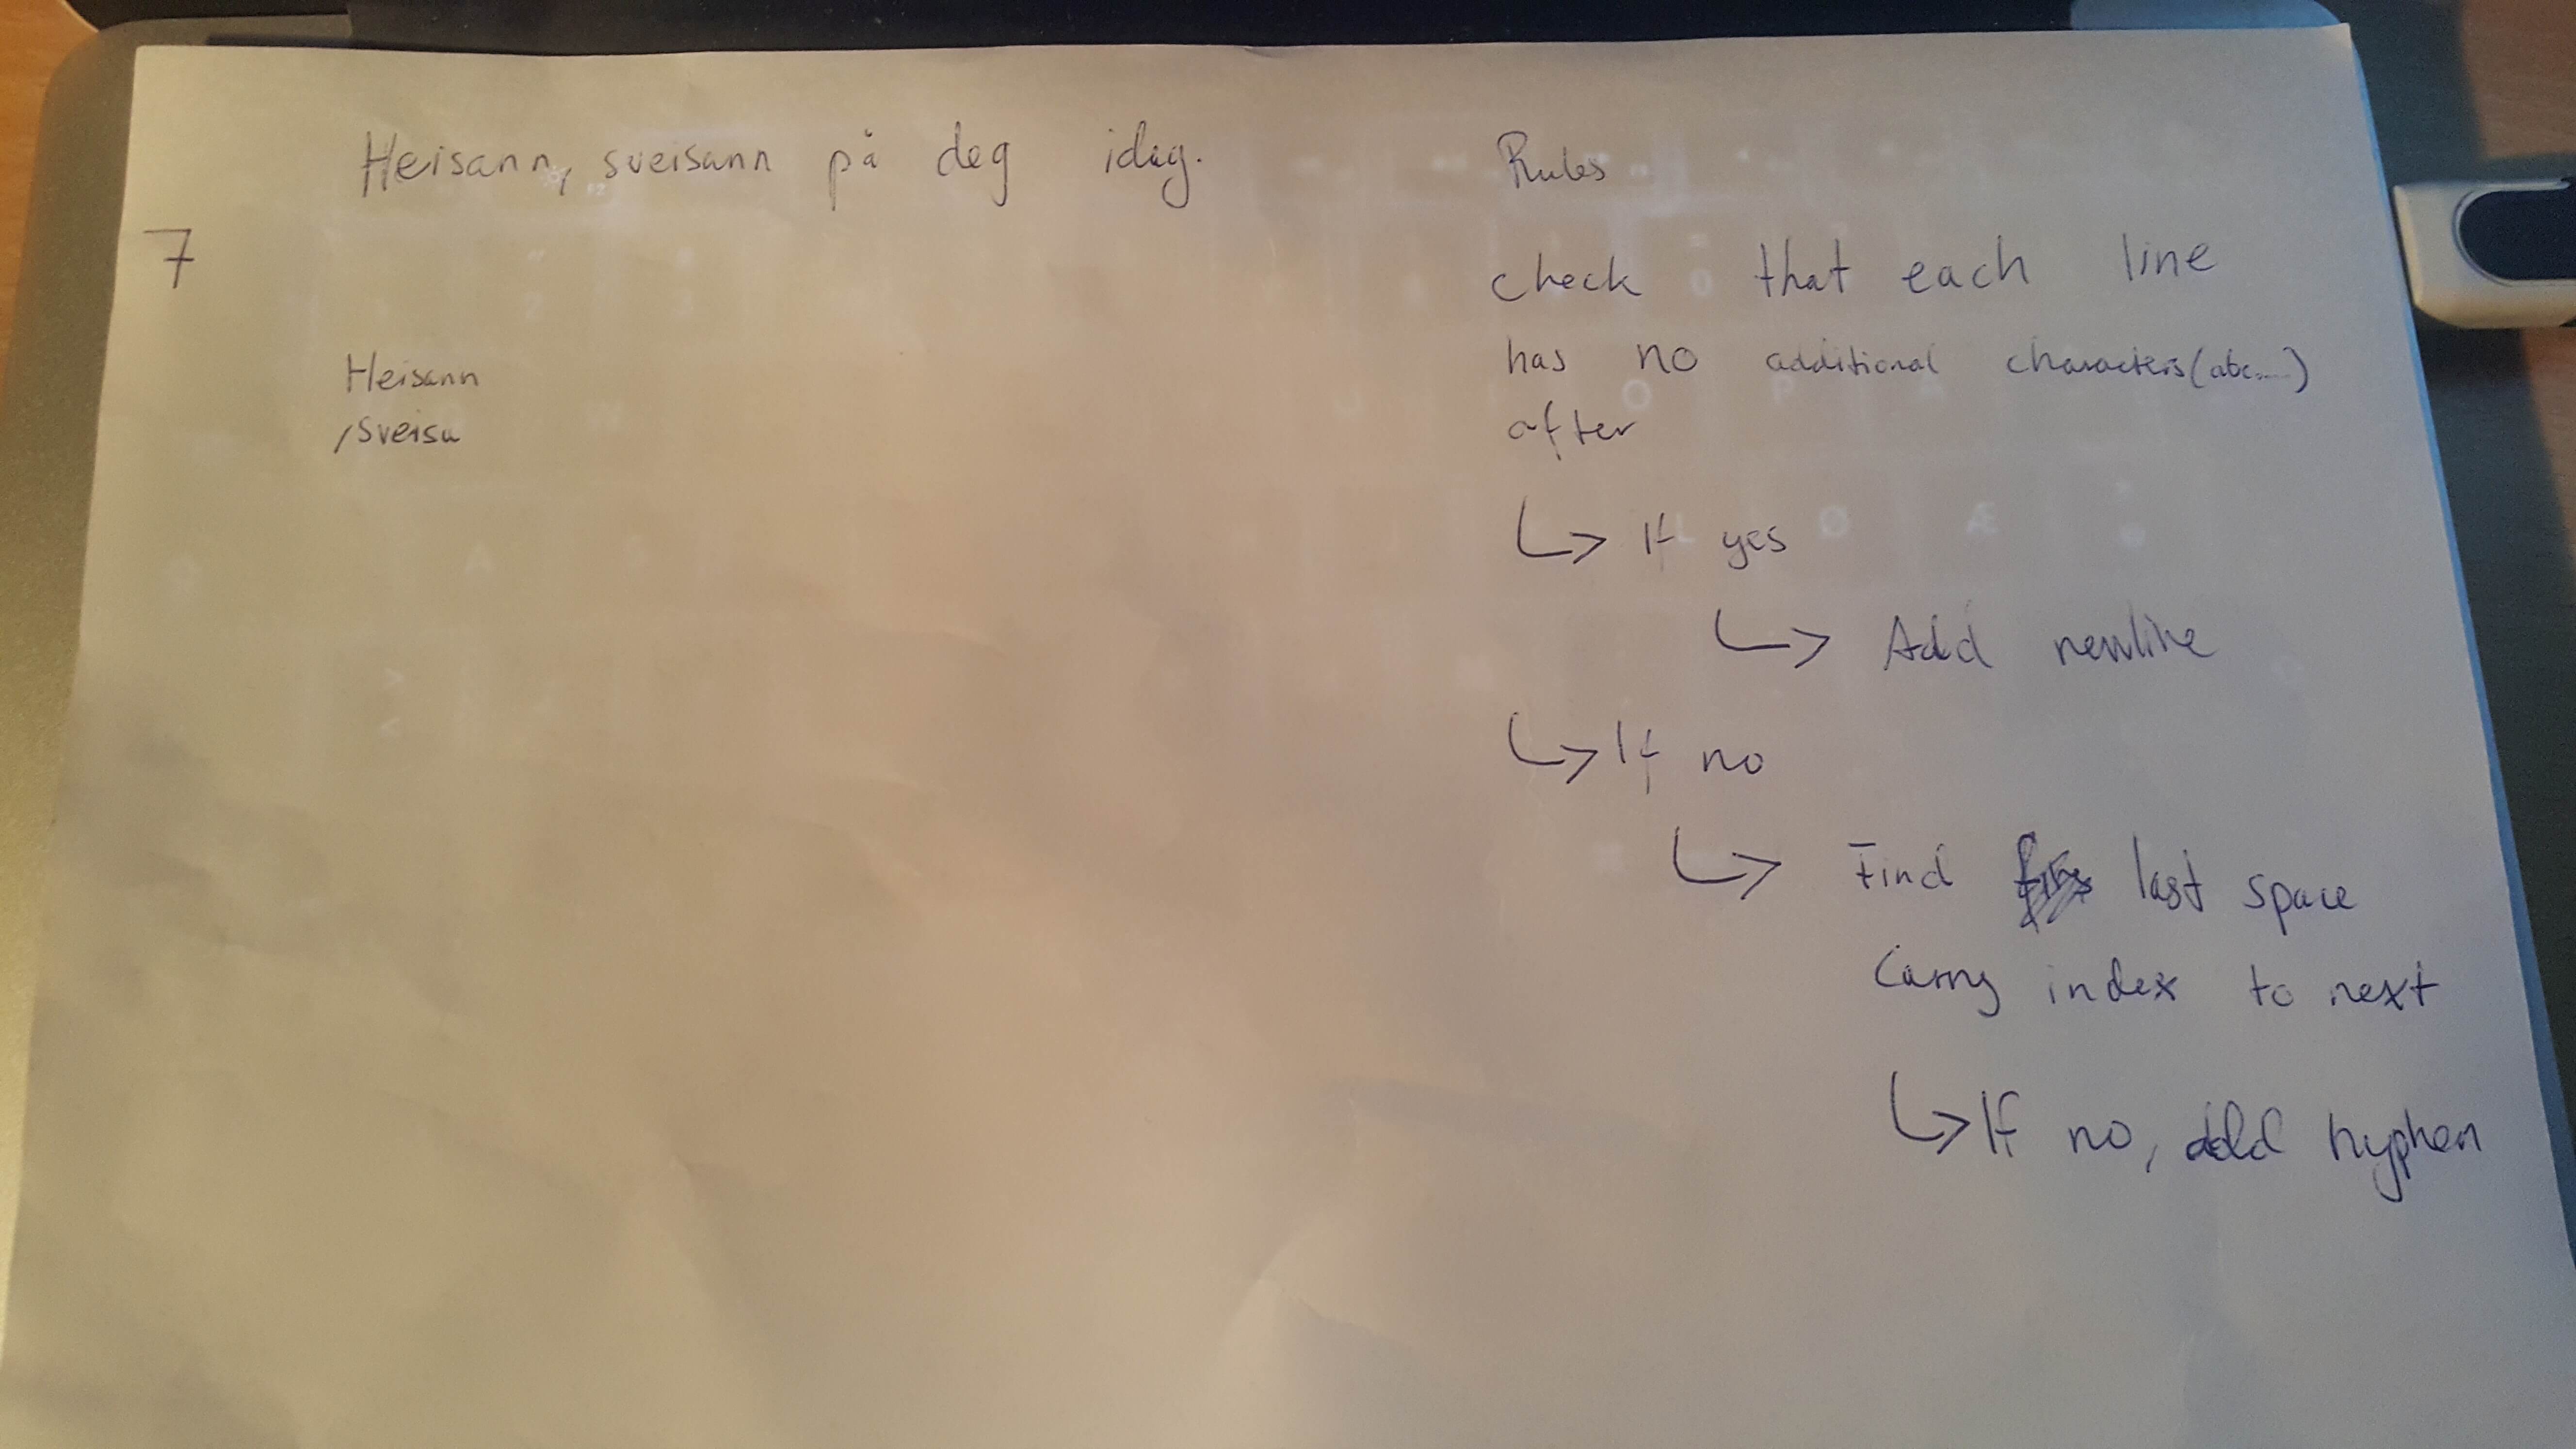 Heisann, sveisann på deg idag.
7
Heisann
,sveisa
Rules
check that each line
has no additional characters (abc....)
after
↳ If yes
↳ Add newline
↳ If no
↳ Find last space
Carry index to next
↳ If no, add hyphen